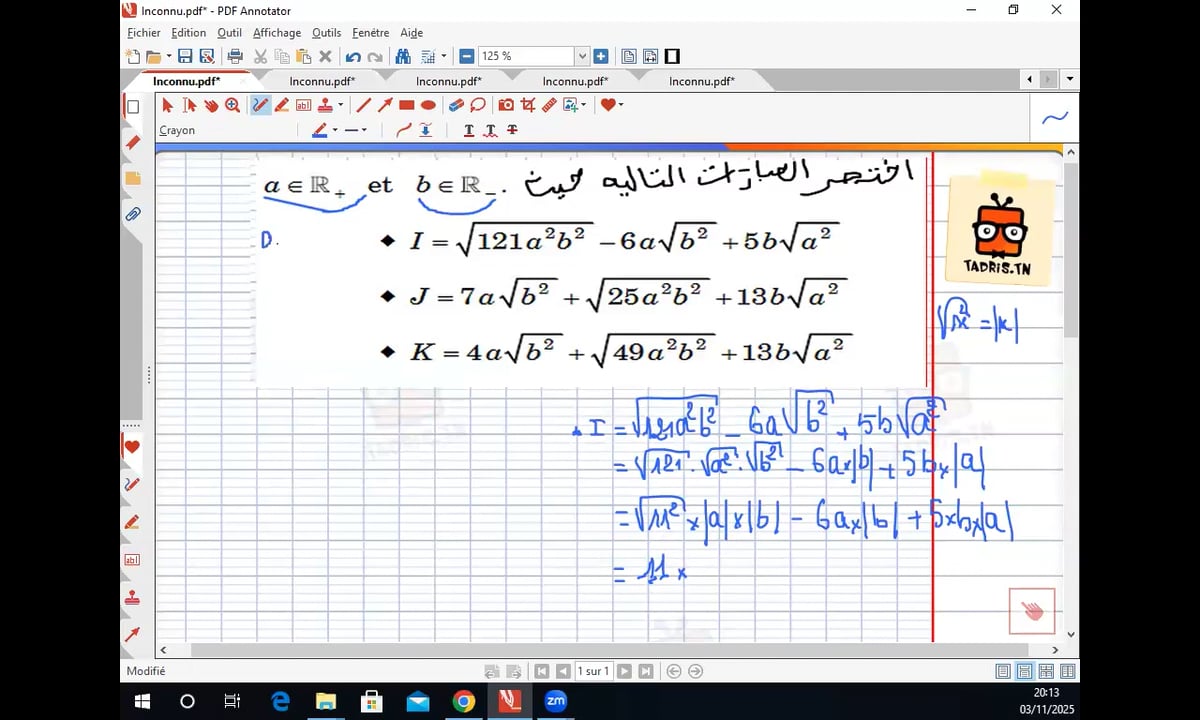 Inconnu.pdf* - PDF Annotator
Fichier Edition Outil Affichage Outils Fenêtre Aide
125 %
Inconnu.pdf* Inconnu.pdf* Inconnu.pdf* Inconnu.pdf* Inconnu.pdf*
Crayon
a ∈ ℝ₊ et b ∈ ℝ₋. اختصر العبارات التالية حيث
D.
◆ I = √(121a²b²) − 6a√(b²) + 5b√(a²)
TADRIS.TN
◆ J = 7a√(b²) + √(25a²b²) + 13b√(a²)
√(x²) = |x|
◆ K = 4a√(b²) + √(49a²b²) + 13b√(a²)
I = √(121a²b²) − 6a√(b²) + 5b√(a²)
= √121 · √(a²) · √(b²) − 6a×|b| + 5b×|a|
= √(11²) × |a| × |b| − 6a×|b| + 5×b×|a|
= 11 ×
1 sur 1
Modifié
20:13
03/11/2025